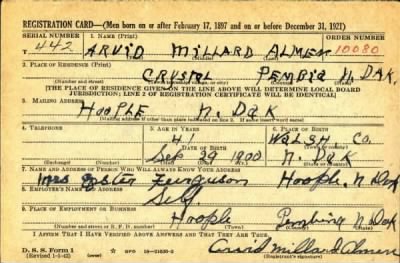 REGISTRATION CARD—(Men born on or after February 17, 1897 and on or before December 31, 1921)
SERIAL NUMBER 1. NAME (Print) ORDER NUMBER
442 ARVID MILLARD ALMEN 10080
(First) (Middle) (Last)
2. PLACE OF RESIDENCE (Print)
CRYSTAL PEMBIA N. DAK.
(Number and street) (Town, township, village, or city) (County) (State)
[THE PLACE OF RESIDENCE GIVEN ON THE LINE ABOVE WILL DETERMINE LOCAL BOARD
JURISDICTION; LINE 2 OF REGISTRATION CERTIFICATE WILL BE IDENTICAL]
3. MAILING ADDRESS
HOOPLE N. DAK
[Mailing address if other than place indicated on line 2. If same insert word same]
4. TELEPHONE 5. AGE IN YEARS 6. PLACE OF BIRTH
41 WALSH CO.
DATE OF BIRTH (Town or county)
Sep 29 1900 N. DAK
(Exchange) (Number) (Mo.) (Day) (Yr.) (State or country)
7. NAME AND ADDRESS OF PERSON WHO WILL ALWAYS KNOW YOUR ADDRESS
Mrs Ferguson Hoople, N Dak
8. EMPLOYER'S NAME AND ADDRESS
Self
9. PLACE OF EMPLOYMENT OR BUSINESS
Hoople Pembina N Dak
(Number and street or R. F. D. number) (Town) (County) (State)
I AFFIRM THAT I HAVE VERIFIED ABOVE ANSWERS AND THAT THEY ARE TRUE.
D. S. S. Form 1
(Revised 1-5-42) GPO 16—21630-2 Arvid Millard Almen
(Registrant's signature)